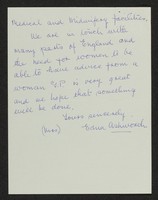 Medical and Midwifery families.
We are in touch with
many parts of England and
the need for women to be
able to have advice from a
woman G.P. is very great
and we hope that something
will be done.
Yours sincerely
(Mrs)